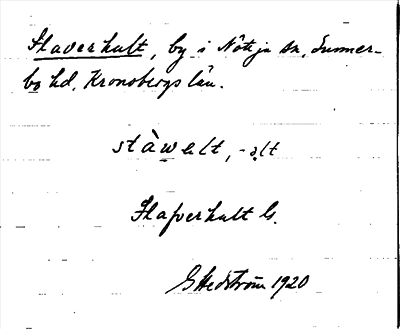 Staverhult, by i Nötja sn, Sunner-
bo hd, Kronobergs län.
stàwult, -ạlt
Stafverhult G.
G Hedström 1920